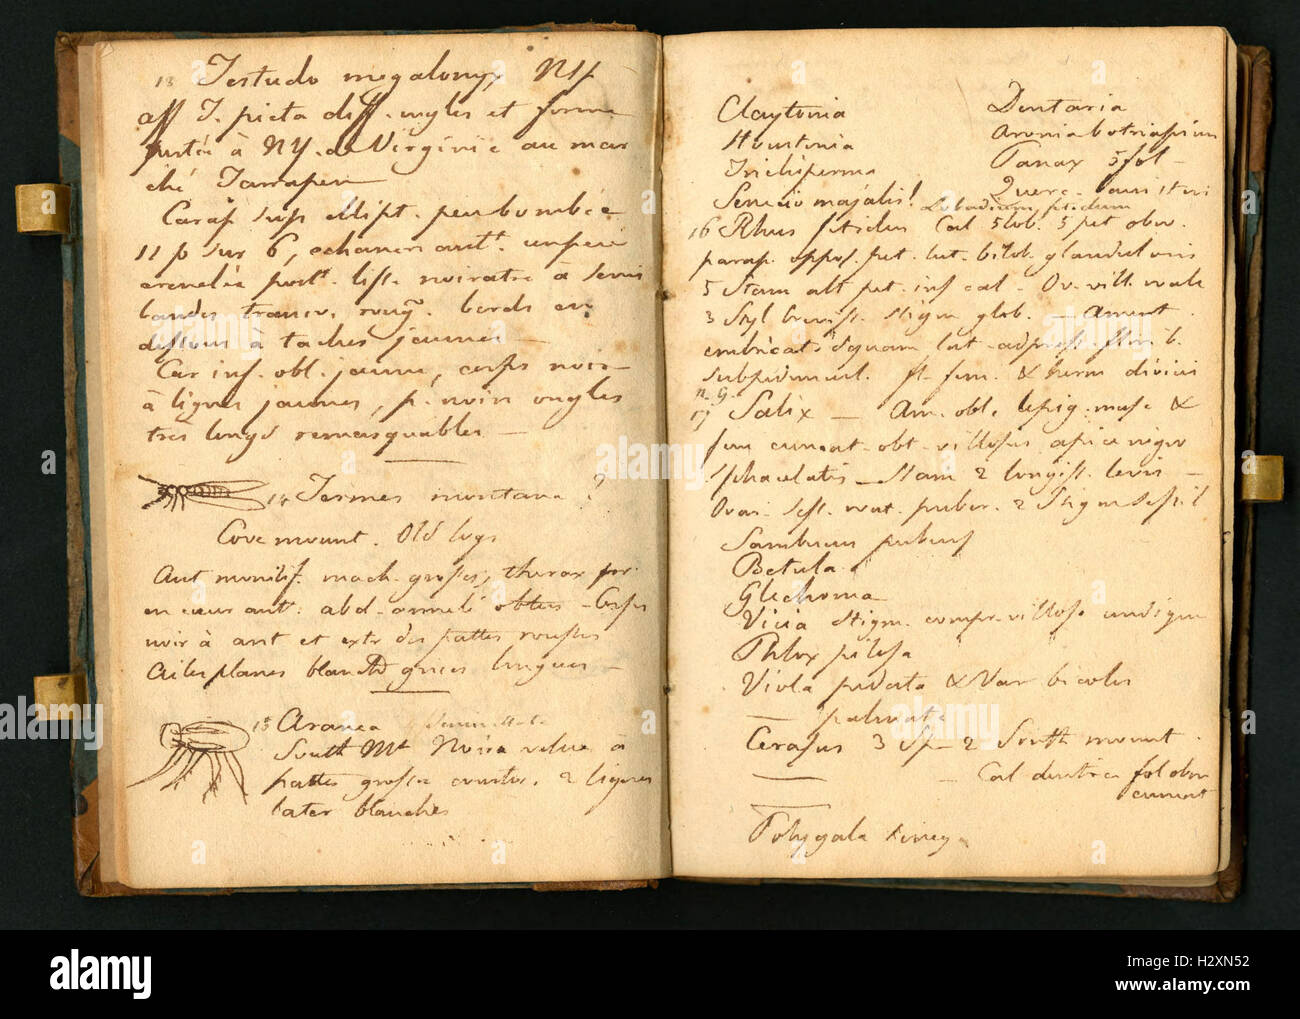 13 Testudo megalonyx NSp
aff T. picta diff. ongles et forme
portée à NY. de Virginie au mar
ché Tarrapen
Carap sup ellipt. peu bombée
11 p sur 6, echancr antt.
crenelée postt. liss. noiratre à
bandes transv. roug. bords en
dessous à taches jaunes —
Car inf. obl. jaune, corps noir
à lignes jaunes, p. noirs ongles
très longs remarquables —
14 Termes montana ?
Cove mount. Old logs
Ant monilif. mach. grosses, thorax
en coeur antt. abd. annelé obtus - Corps
noir à ant et extr des pattes rousses
Ailes planes longues —
15 Aranea
South Mt Noire velue à
pattes grosses courtes, 2 lignes
later blanches
Claytonia Dentaria
Houstonia Aronia botriapium
Panax 5fol —
Senecio majalis!
16 Rhus Cal 5 lob. 5 pet obov.
parap. oppos. pet. lat. bilob. glandul
5 Stam alt pet. inf cal - Ov. vill. ovale
3 Styl breviss. stigm glob. — Ament.
embricats squam. lat - adpress
fl. fem. & herm divius
n. G.
17 Salix — Am. obl. &
fem cuneat - obt - villosus apice nigro
Sphacelatis — Stam 2 longiss. levis —
Ovar. sess. ovat. puber. 2 Stigm sessil
Sambucus pubens
Betula
Glechoma
Vicia stigm. compr. villoso
Phlox pilosa
Viola pedata & Var bicolor
— palmata
Cerasus 3 Sp — 2 South mount.
— Cal dentic. fol obov
cuneat
Polygala
alamy
a
alamy
Image ID: H2XN52
www.alamy.com